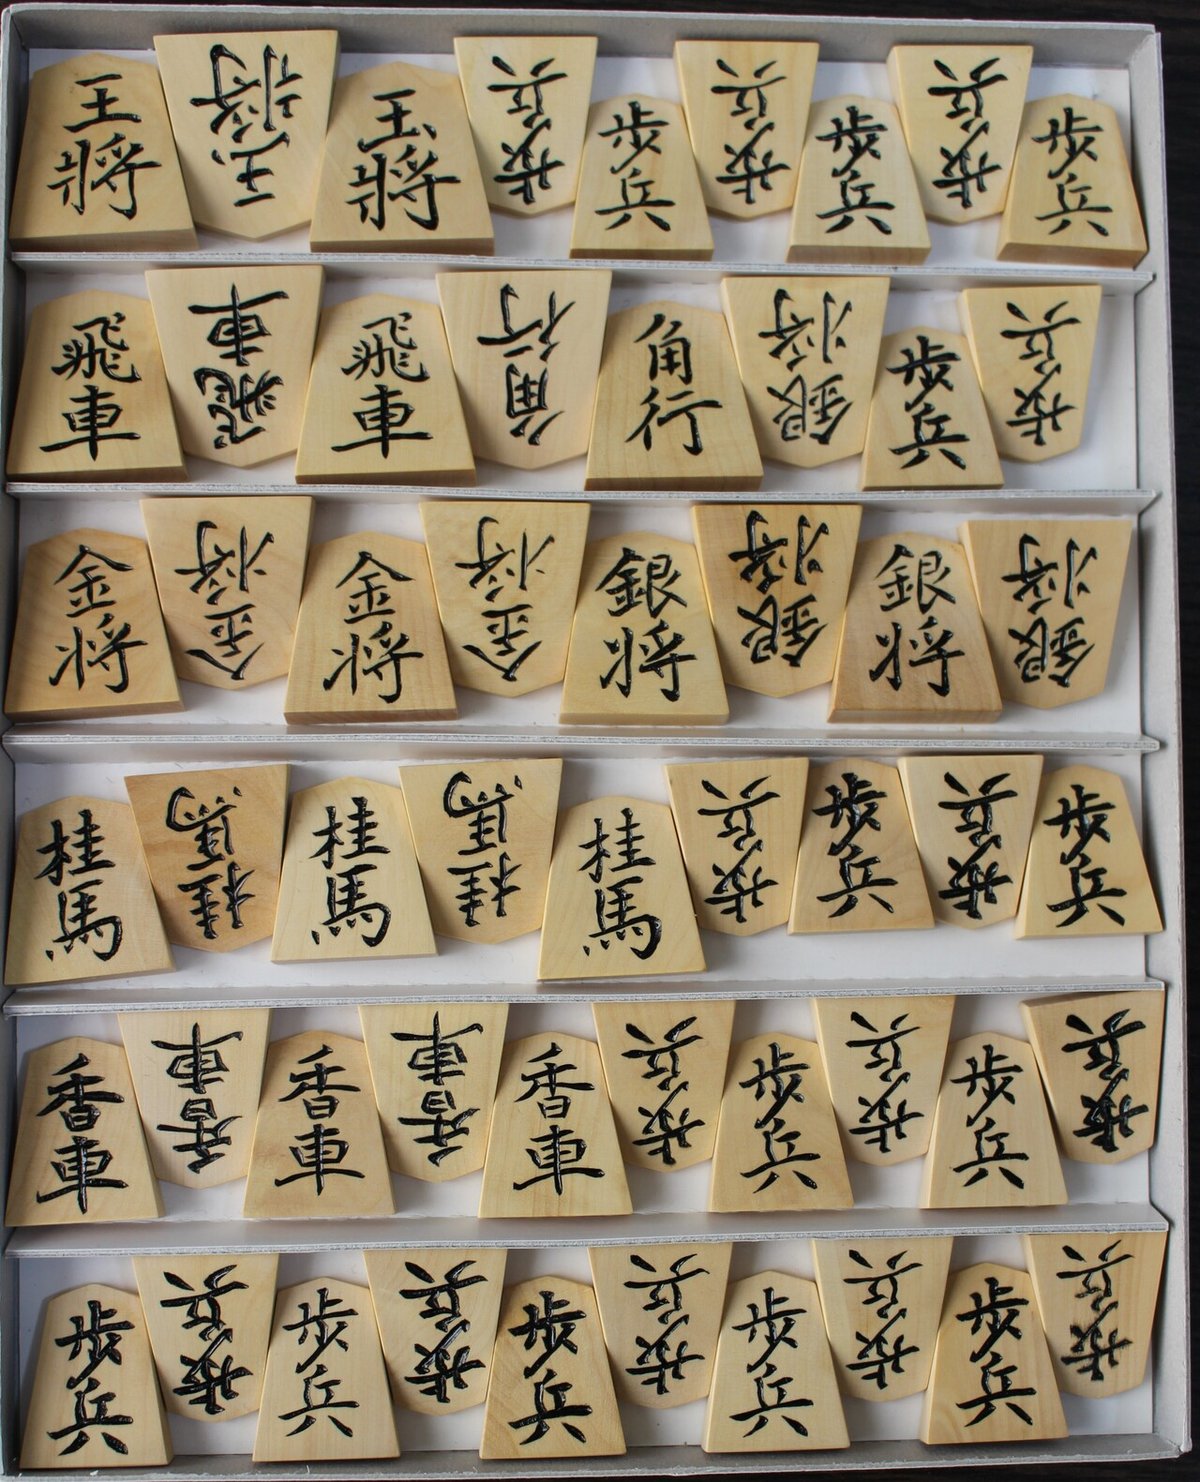 王將
玉將
玉將
歩兵
歩兵
歩兵
歩兵
歩兵
歩兵
飛車
飛車
飛車
角行
角行
銀将
歩兵
歩兵
金将
金将
金将
金将
銀将
銀将
銀将
銀将
桂馬
桂馬
桂馬
桂馬
桂馬
歩兵
歩兵
歩兵
歩兵
香車
香車
香車
香車
香車
歩兵
歩兵
歩兵
歩兵
歩兵
歩兵
歩兵
歩兵
歩兵
歩兵
歩兵
歩兵
歩兵
歩兵